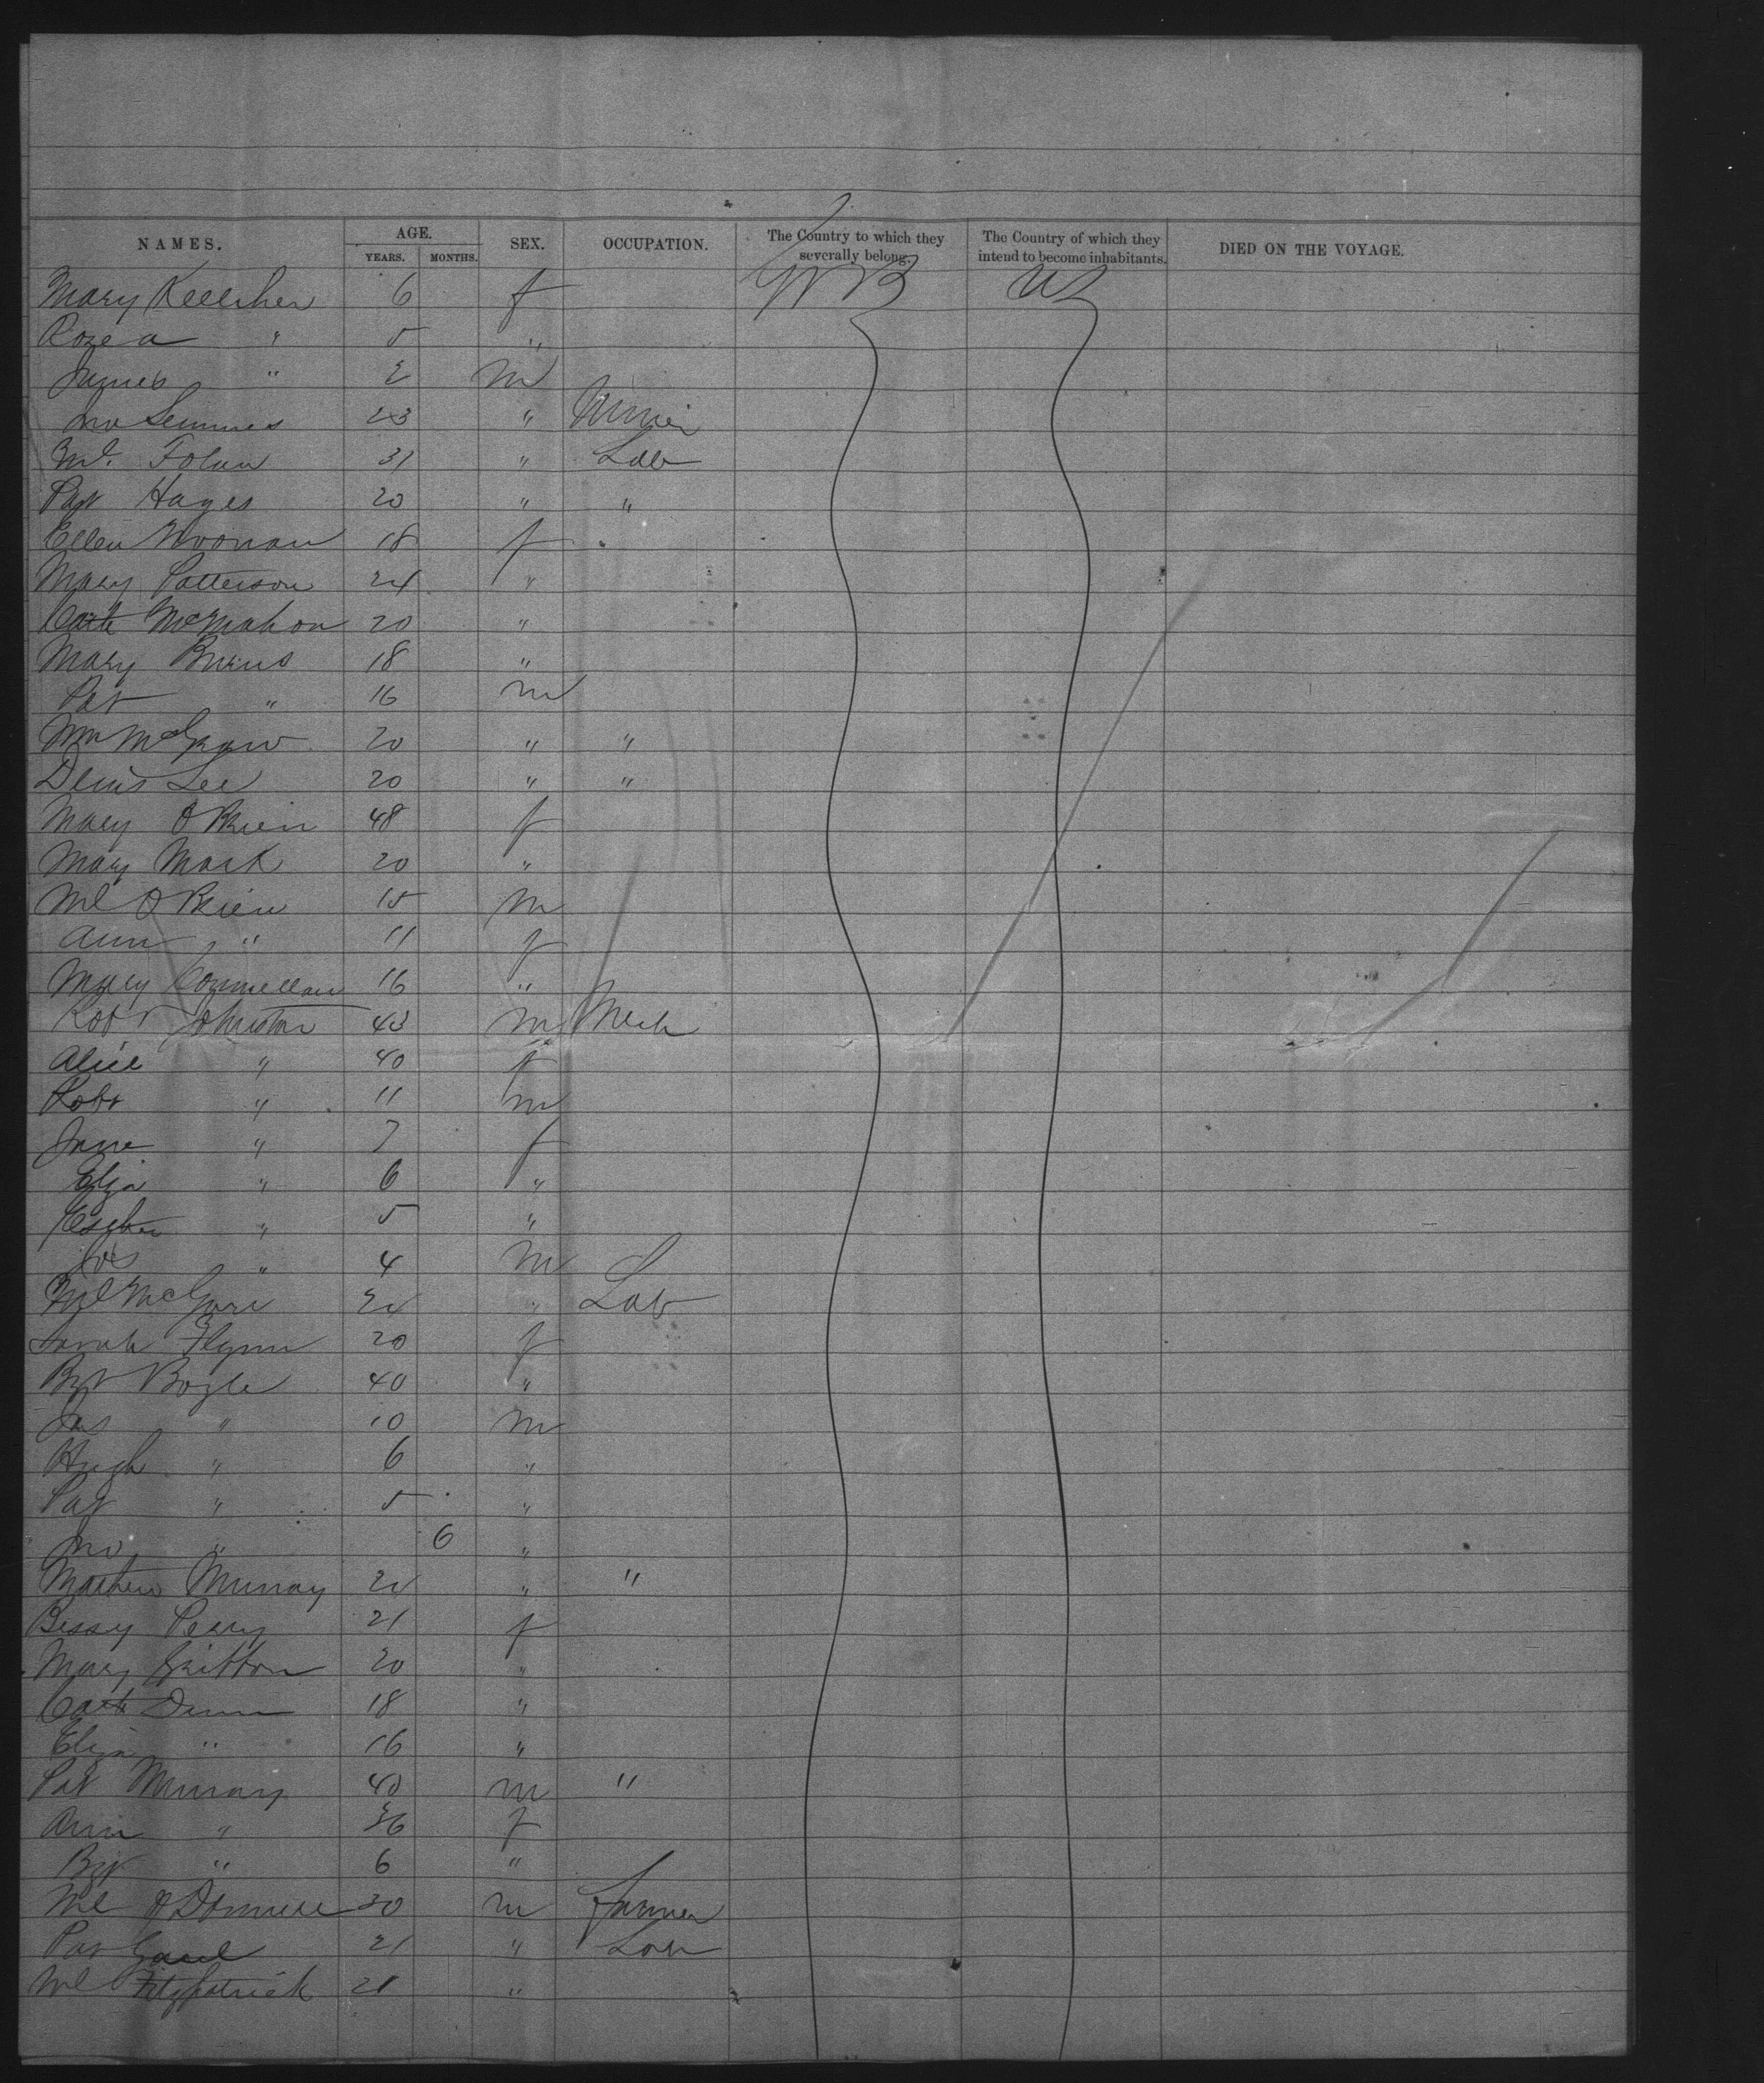 NAMES. AGE. SEX. OCCUPATION. The Country to which they severally belong. The Country of which they intend to become inhabitants. DIED ON THE VOYAGE.
YEARS. MONTHS.
Mary Kelleher 6 f
Rose a " 5 "
James " 2 m
Jno Semmes 23 " Miner
Ml. Folan 31 " Lab
Pat Hayes 20 " "
Ellen Noonan 18 f
Mary Patterson 24 "
Cath McMahon 20 "
Mary Burns 18 "
Pat " 16 m
Wm McGraw 20 " "
Denis Lee 20 " "
Mary O'Brien 48 f
Mary Mack 20 "
Ml O'Brien 15 m
Ann " 11 f
Mary Connellan 16 "
Robt Johnston 43 m Mech
Alice " 40 f
Robt " 11 m
Jane " 7 f
Eliza " 6 "
Esther " 5 "
Jos " 4 m
Ml McGuire " Lab
Sarah Flynn 20 f
Bgt Bogle 40 "
Jas " 10 m
Hugh " 6 "
Pat " 5 "
Jno " 6 "
Mathew Murray " "
Bessy Perry 21 f
Mary Gritton 20 "
Cath Dunn 18 "
Eliza " 16 "
Pat Murray 40 m "
Ann " 36 f
Bgt " 6 "
Ml O'Donnell 30 m Farmer
Pat Gaul 21 " Lab
Ml Fitzpatrick 21 "